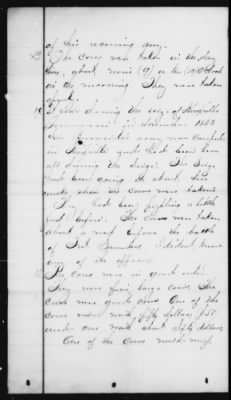 of his receiving any.
The cows was taken in the day
time, about nine (9) or ten (10) O'clock
in the morning They was taken
It was during the siege of Knoxville
in November 1863
The
in Knoxville and had been there
all during the siege. The siege
had been going on about two
weeks when the cows was taken
They had been fighting a little
just before. The cows was taken
about a week before the battle
of Fort Saunders I didnt know
any of the officers.
The cows was in good order.
They was five, large cows. The
cows was good cows One of the
cows was worth fifty dollars, just
one worth about fifty dollars
One of the cows would weigh